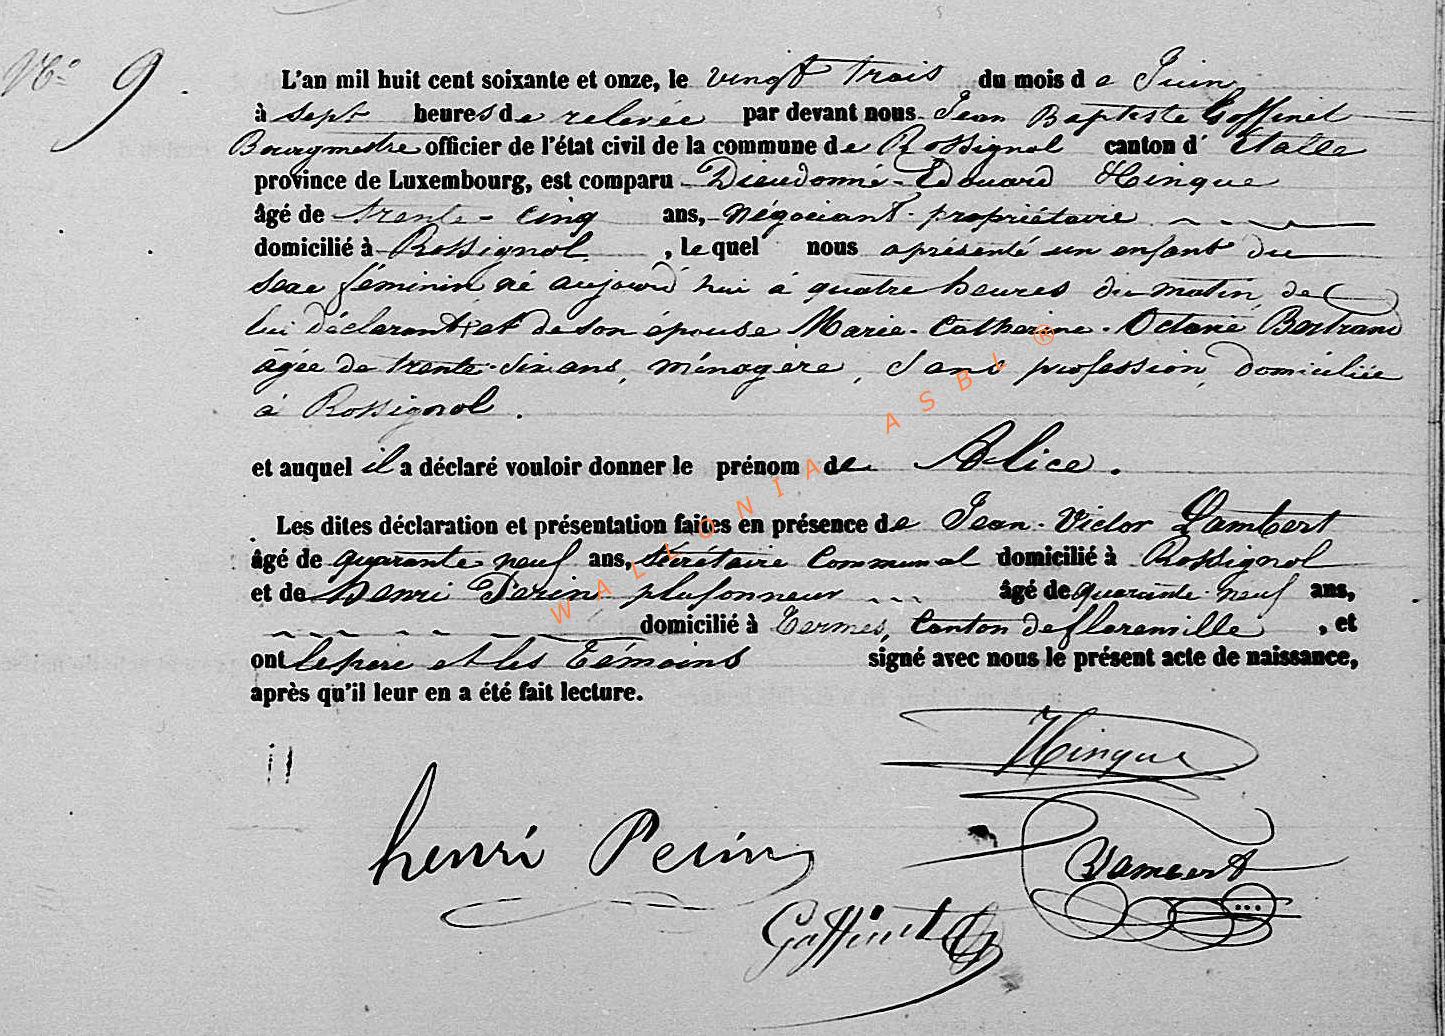 N° 9.
L'an mil huit cent soixante et onze, le vingt trois du mois de Juin
à sept heures de relevée par devant nous Jean Baptiste Goffinet
Bourgmestre officier de l'état civil de la commune de Rossignol canton d' Etalle
province de Luxembourg, est comparu Dieudonné-Edouard Hinque
âgé de trente-cinq ans, négociant-propriétaire
domicilié à Rossignol, lequel nous a présenté un enfant du
sexe féminin né aujourd'hui à quatre heures du matin, de
lui déclarant et de son épouse Marie-Catherine-Octavie Bertrand
âgée de trente-six ans, ménagère, sans profession, domiciliée
à Rossignol.
et auquel il a déclaré vouloir donner le prénom de Alice.
Les dites déclaration et présentation faites en présence de Jean-Victor Lambert
âgé de quarante neuf ans, sécrétaire Communal domicilié à Rossignol
et de Henri Perin plafonneur âgé de quarante neuf ans,
domicilié à Termes, Canton de florenville, et
ont le père et les témoins signé avec nous le présent acte de naissance,
après qu'il leur en a été fait lecture.
Hinque
henri Perin
Lambert
Goffinet
WALLONIA ASBL ®